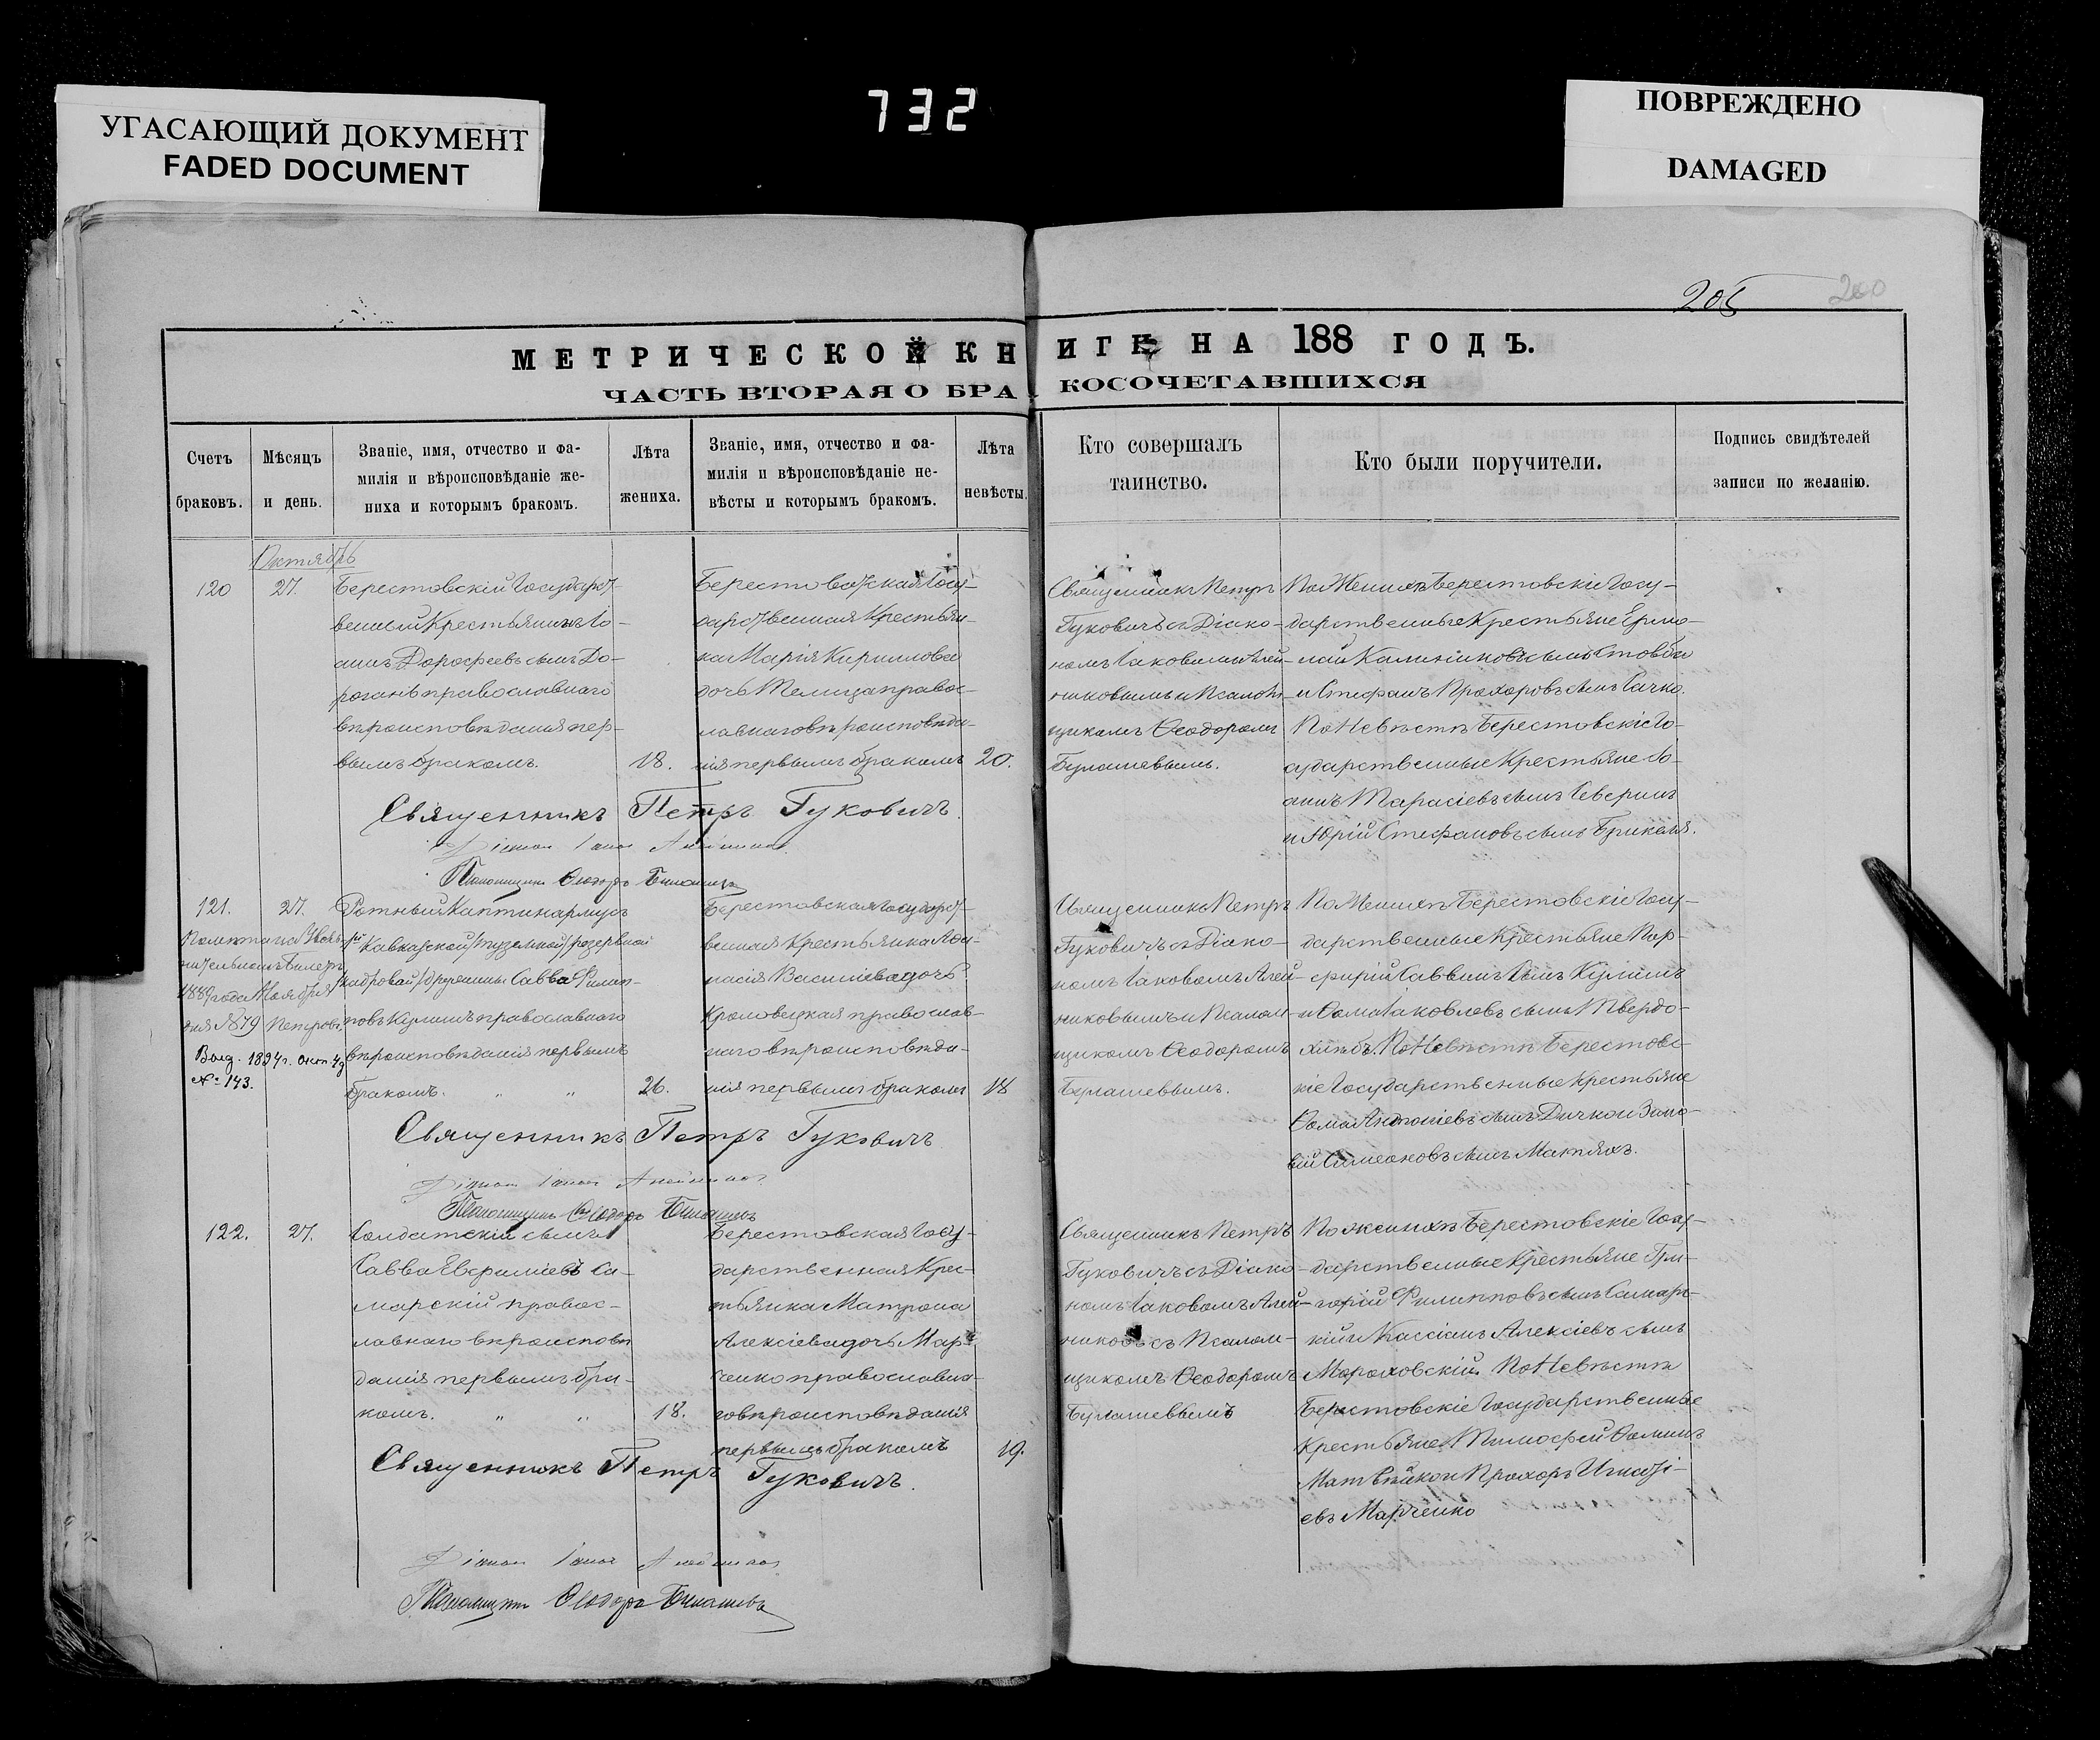 УГАСАЮЩИЙ ДОКУМЕНТ
FADED DOCUMENT
732
ПОВРЕЖДЕНО
DAMAGED
205
200
МЕТРИЧЕСКОЙ КНИГѢ НА 188 ГОДЪ.
ЧАСТЬ ВТОРАЯ О БРАКОСОЧЕТАВШИХСЯ
Счетъ
браковъ.
Мѣсяцъ
и день.
Званіе, имя, отчество и фа-
милія и вѣроисповѣданіе же-
ниха и которымъ бракомъ.
Лѣта
жениха.
Званіе, имя, отчество и фа-
милія и вѣроисповѣданіе не-
вѣсты и которымъ бракомъ.
Лѣта
невѣсты.
Кто совершалъ
таинство.
Кто были поручители.
Подпись свидѣтелей
записи по желанію.
Октябрь
120
27.
Берестовскій Государст-
венный Крестьянинъ Іо-
аннъ Дорофеевъ сынъ До-
рошъ православнаго
вѣроисповѣданія пер-
вымъ бракомъ.
18.
Берестовская Госу-
дарственная Крестьян-
ка Марія Кириллова
дочь Телица правос-
лавнаго вѣроисповѣда-
нія первымъ бракомъ
20.
Священникъ Петръ
Гуковичъ съ Діако-
номъ Іаковомъ Алей-
никовымъ и Псалом-
щикомъ Ѳеодоромъ
Булашевымъ.
По Женихѣ Берестовскіе Госу-
дарственные Крестьяне Ермо-
лай Калиниковъ сынъ
и Стефанъ Прохоровъ сынъ Сачко.
По Невѣстѣ Берестовскіе Го-
сударственные Крестьяне Іо-
аннъ Тарасіевъ сынъ Северинъ
и Юрій Стефановъ сынъ
Священникъ Петръ Гуковичъ.
Діаконъ Іаковъ Алейниковъ
Псаломщикъ Ѳеодоръ Булашевъ
121.
27.
1889 года Ноября
дня № 879
Выд. 1894 г. Окт. 4 д
№ 143.
Ротный Каптинармусъ
Кавказской /туземной/ резервной
/кадровой/ дружины Савва Филип-
повъ Кулишъ православнаго
вѣроисповѣданія первымъ
бракомъ. " "
26.
Берестовская Государст-
венная Крестьянка Афа-
насія Василіева дочь
Кролевецкая православ-
наго вѣроисповѣда-
нія первымъ бракомъ
18
Священникъ Петръ
Гуковичъ съ Діако-
номъ Іаковомъ Алей-
никовымъ и Псалом-
щикомъ Ѳеодоромъ
Булашевымъ.
По Женихѣ Берестовскіе Госу-
дарственные Крестьяне Пор-
фирій Саввинъ сынъ Кулишъ
и Ѳома Іаковлевъ сынъ Твердо-
хлѣбъ. По Невѣстѣ Берестовс-
кіе Государственные Крестьяне
Ѳома Антоніевъ сынъ Дичко и Зино-
вій Симеоновъ сынъ
Священникъ Петръ Гуковичъ
Діаконъ Іаковъ Алейниковъ
Псаломщикъ Ѳеодоръ Булашевъ
122.
27.
Солдатскій сынъ
Савва Евфиміевъ Са-
марскій правос-
лавнаго вѣроисповѣ
данія первымъ бра-
комъ. " "
18.
Берестовская Госу-
дарственная Крес-
тьянка Матрона
Алексіева дочь Мар-
ченко православна-
го вѣроисповѣданія
первымъ бракомъ
19.
Священникъ Петръ
Гуковичъ съ Діако-
номъ Іаковомъ Алей-
никовъ съ Псалом-
щикомъ Ѳеодоромъ
Булашевымъ
По женихѣ Берестовскіе Госу-
дарственные Крестьяне Гри-
горій Филипповъ сынъ Самарс-
кій и Кассіанъ Алексіевъ сынъ
Мороховскій. По Невѣстѣ
Берестовскіе Государственные
Крестьяне Тимофей Ѳоминъ
Матвѣйко и Прохоръ Игнаті-
евъ Марченко
Священникъ Петръ Гуковичъ.
Діаконъ Іаковъ Алейниковъ
Псаломщикъ Ѳеодоръ Булашевъ